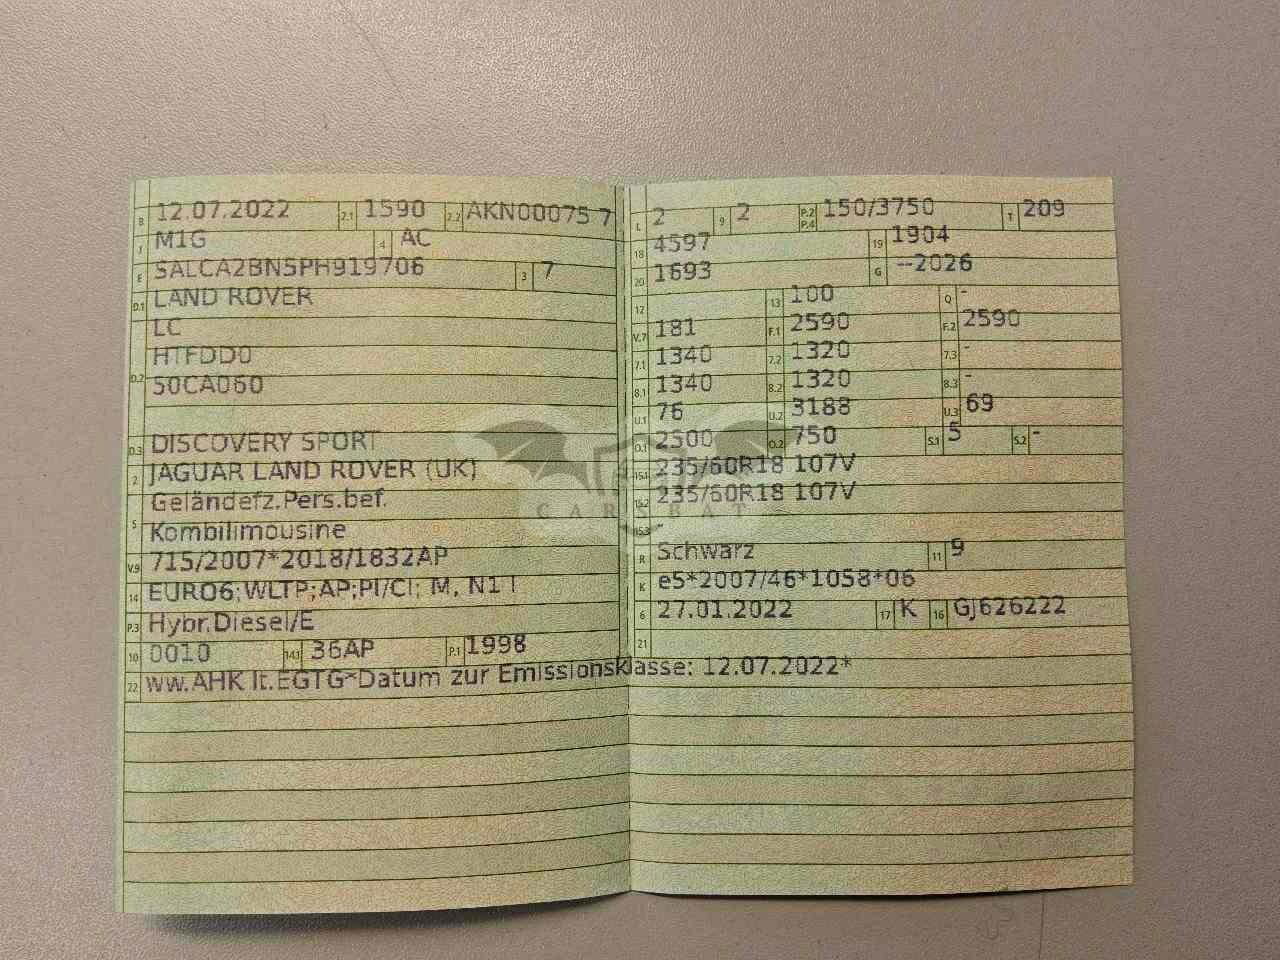 B 12.07.2022 2.1 1590 2.2 AKN00075 7
J M1G 4 AC
E SALCA2BN5PH919706 3 7
D.1 LAND ROVER
D.2 LC
HTFDD0
50CA060
D.3 DISCOVERY SPORT
2 JAGUAR LAND ROVER (UK)
5 Geländefz.Pers.bef.
Kombilimousine
V.9 715/2007*2018/1832AP
14 EURO6;WLTP;AP;PI/CI; M, N1 I
P.3 Hybr.Diesel/E
10 0010 14.1 36AP P.1 1998
22 ww.AHK lt.EGTG*Datum zur Emissionsklasse: 12.07.2022*
L 2 9 2 P.2 P.4 150/3750 T 209
18 4597 19 1904
20 1693 G --2026
12 13 100 Q -
V.7 181 F.1 2590 F.2 2590
7.1 1340 7.2 1320 7.3 -
8.1 1340 8.2 1320 8.3 -
U.1 76 U.2 3188 U.3 69
O.1 2500 O.2 750 S.1 5 S.2 -
15.1 235/60R18 107V
15.2 235/60R18 107V
15.3 -
R Schwarz 11 9
K e5*2007/46*1058*06
6 27.01.2022 17 K 16 GJ626222
21
CARSBAT